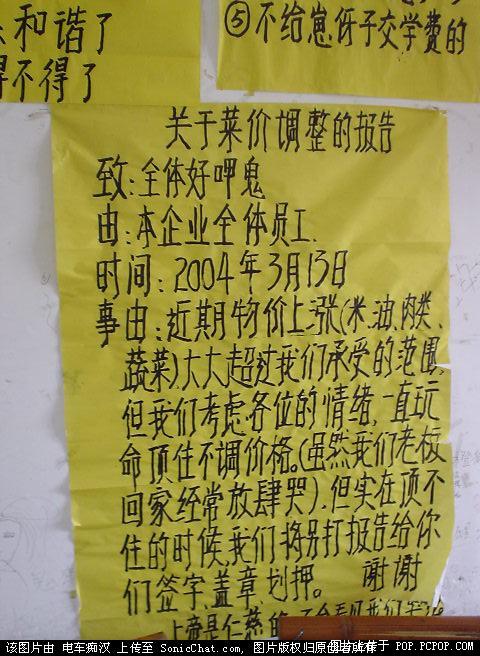 和谐了
不得了
⑤不给崽伢子交学费的
关于菜价调整的报告
致:全体好呷鬼
由:本企业全体员工.
时间:2004年3月13日
事由:近期物价上涨(米、油、肉类、
蔬菜)大大超过我们承受的范围,
但我们考虑各位的情绪,一直玩
命顶住不调价格。(虽然我们老板
回家经常放肆哭).但实在顶不
住的时候,我们将另打报告给你
们签字、盖章、划押。 谢谢
上帝是仁慈的
该图片由 电车痴汉 上传至 SonicChat.com 图片版权归原创者所有
图片放大于 POP.PCPOP.COM